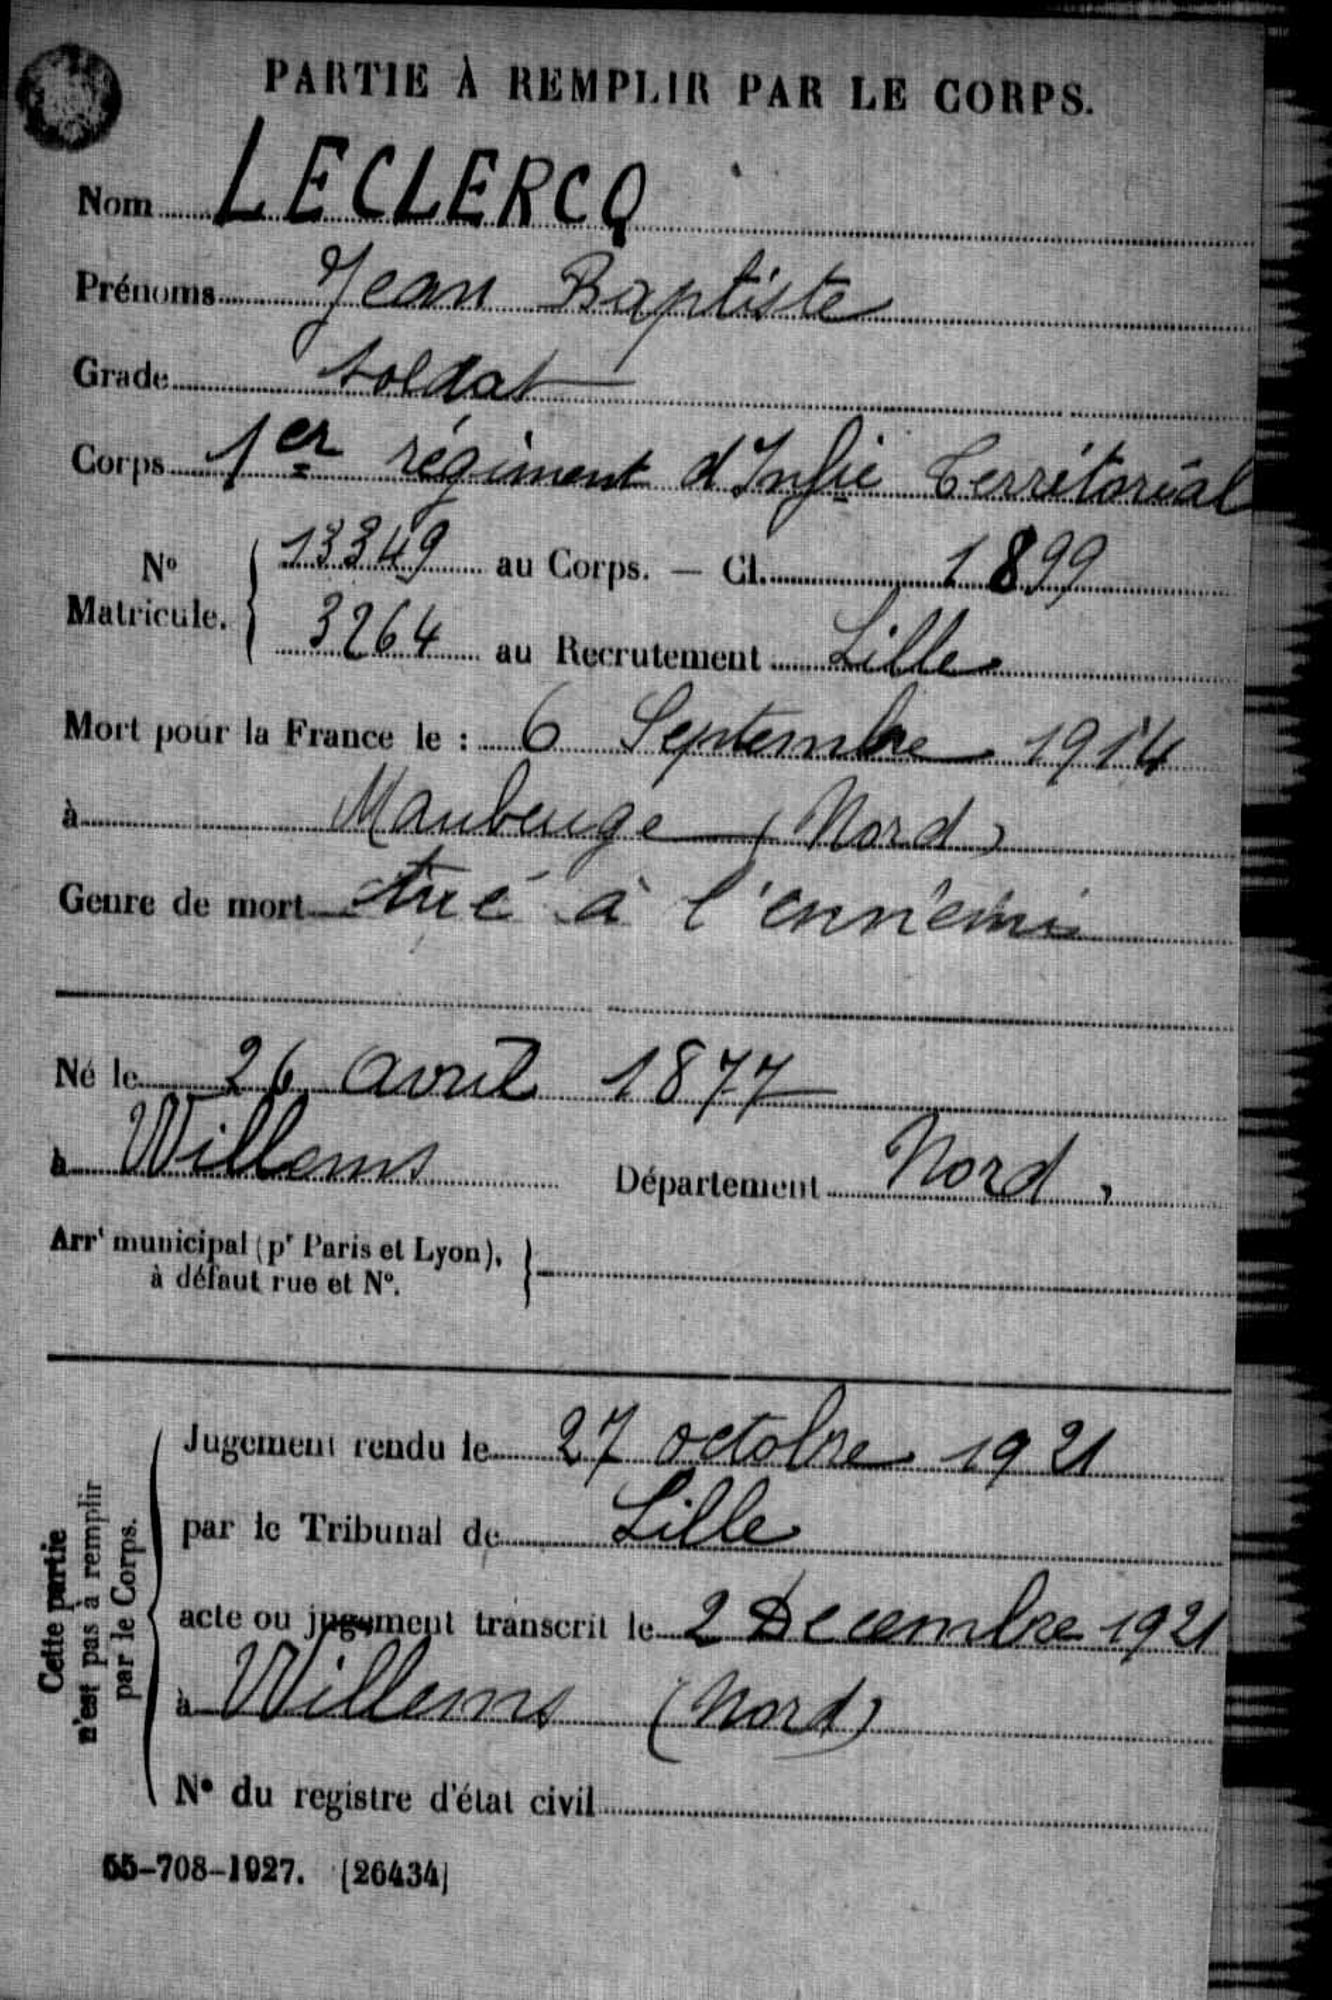 PARTIE À REMPLIR PAR LE CORPS.
Nom LECLERCQ
Prénoms Jean Baptiste
Grade soldat
Corps 1er régiment d'Infie Territorial
No Matricule. { 13349 au Corps. — Cl. 1899
3264 au Recrutement Lille
Mort pour la France le : 6 Septembre 1914
à Maubeuge (Nord)
Genre de mort tué à l'ennemi
Né le 26 avril 1877
à Willems Département Nord.
Arrt municipal (pr Paris et Lyon), à défaut rue et No. }
Cette partie n'est pas à remplir par le Corps.
Jugement rendu le 27 octobre 1921
par le Tribunal de Lille
acte ou jugement transcrit le 2 Decembre 1921
à Willems (Nord)
No du registre d'état civil
55-708-1927. [26434]